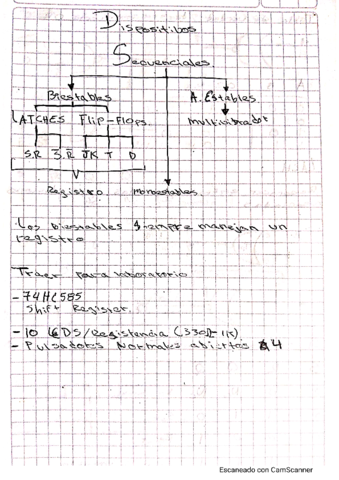 Dispositibos
Secuenciales.
Biestables
A. Estables
LATCHES Flip-Flops.
multivibrador
S.R S.R JK T D
Registro
monoestables
Los biestables siempre manejan un
registro
Traer para laboratorio
- 74HC595
Shift Register.
- 10 LEDS/Registencia (330Ω-1K)
- Pulsadores Normales abiertos 4
Escaneado con CamScanner